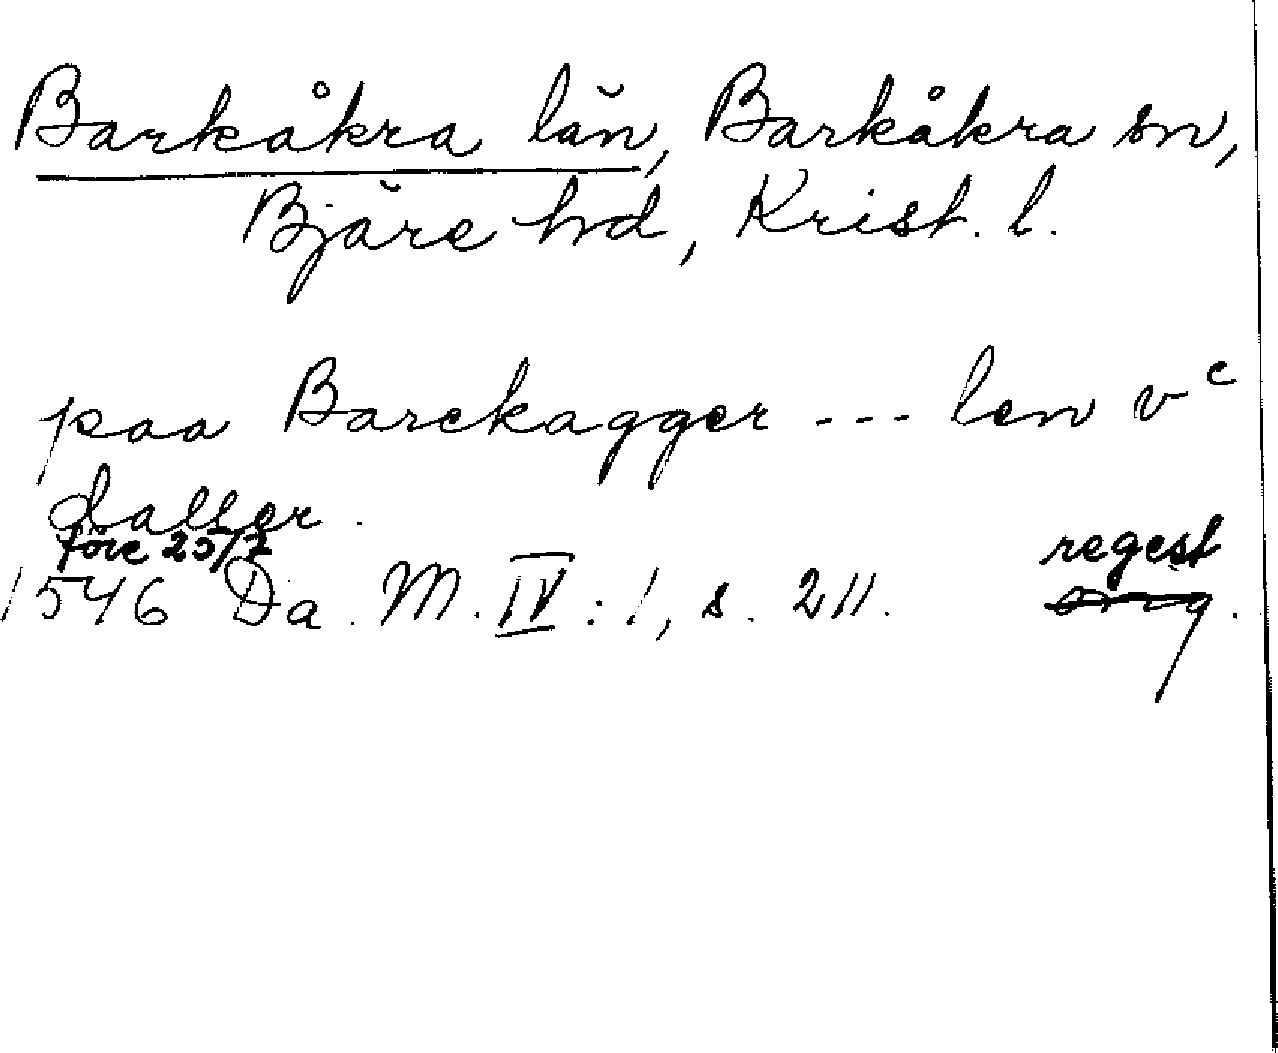 Barkåkra län, Barkåkra sn,
Bjäre hd, Krist. l.
paa Barckagger --- len vᶜ
daller.
före 25/7
regest
1546 Da. M. IV : 1, s. 211. orig.